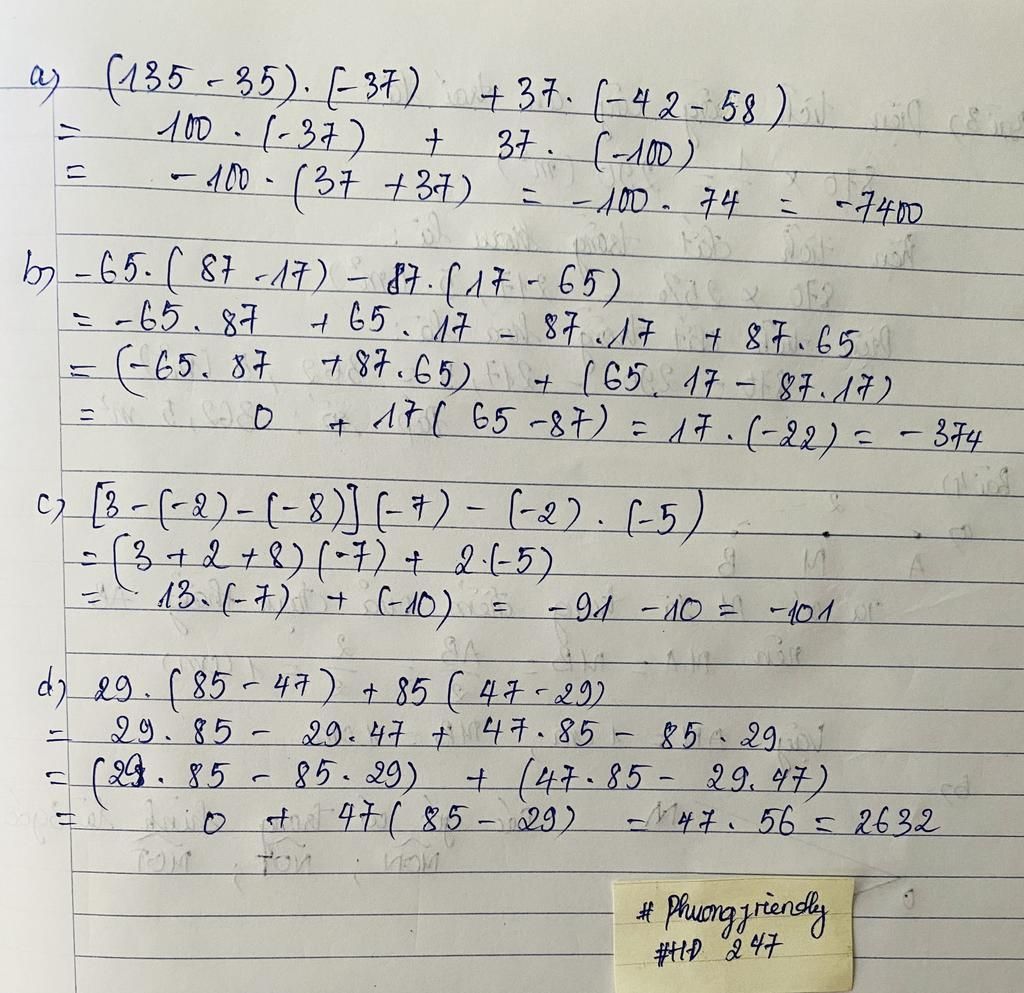 a) (135 - 35) . (-37) + 37 . (-42 - 58)
= 100 . (-37) + 37 . (-100)
= -100 . (37 + 37) = -100 . 74 = -7400
b) -65 . (87 - 17) - 87 . (17 - 65)
= -65 . 87 + 65 . 17 - 87 . 17 + 87 . 65
= (-65 . 87 + 87 . 65) + (65 . 17 - 87 . 17)
= 0 + 17( 65 - 87) = 17 . (-22) = -374
c) [3 - (-2) - (-8)] (-7) - (-2) . (-5)
= (3 + 2 + 8) (-7) + 2 . (-5)
= 13 . (-7) + (-10) = -91 - 10 = -101
d) 29 . (85 - 47) + 85 ( 47 - 29)
= 29 . 85 - 29 . 47 + 47 . 85 - 85 . 29
= (29 . 85 - 85 . 29) + (47 . 85 - 29 . 47)
= 0 + 47( 85 - 29) = 47 . 56 = 2632
# Phuongfriendly
#HD 247